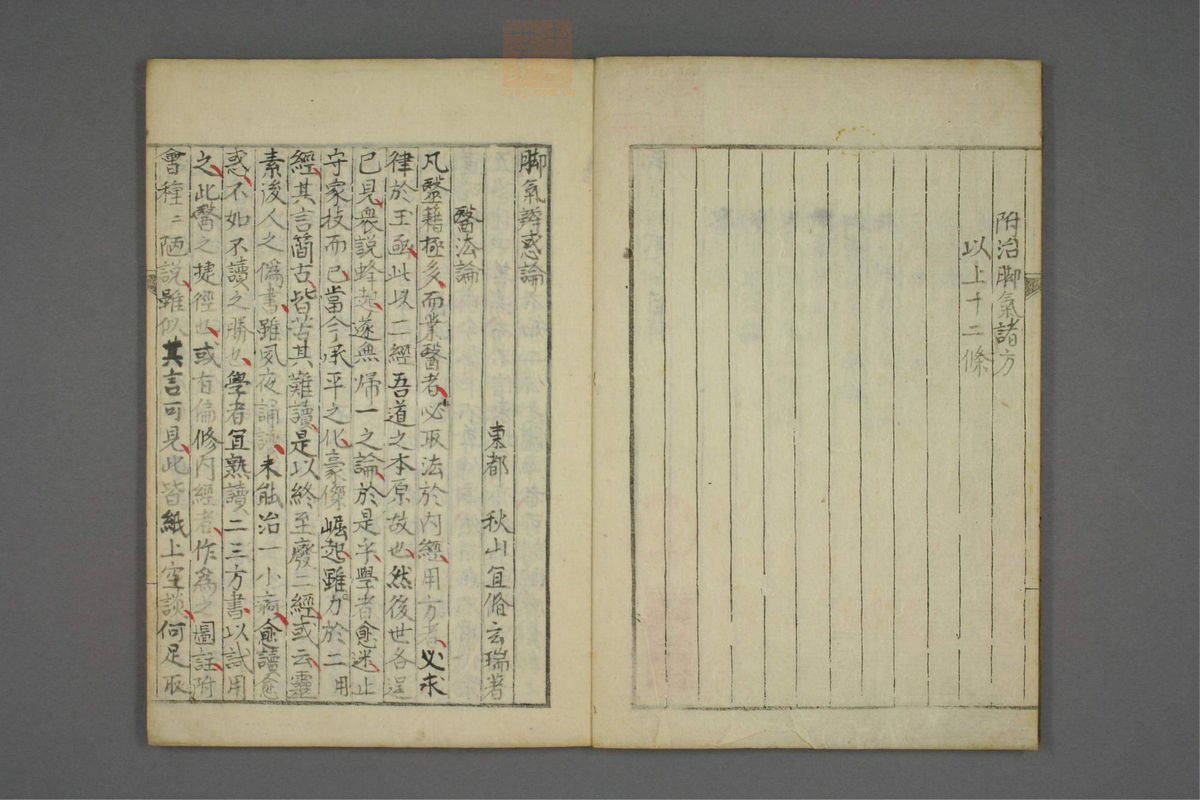 附治脚氣諸方
以上十二條
脚氣辨惑論
東都 秋山宜脩云瑞著
醫法論
凡醫籍極多而業醫者必取法於内經用方者必求
律於王函此以二經吾道之本原故也然後世各逞
已見衆説蜂起遂無帰一之論於是乎學者愈迷止
守家技而已當今承平之化豪傑崛起雖力於二用
經其言簡古皆苦其難讀是以終至廢二經或云靈
素後人之偽書雖夙夜誦讀未能治一小病愈讀愈
惑不如不讀之勝也學者宜熟讀二三方書以試用
之此醫之捷徑也或有偏修内經者作為之圖註附
會種〻陋説雖似其言可見此皆紙上空談何足取